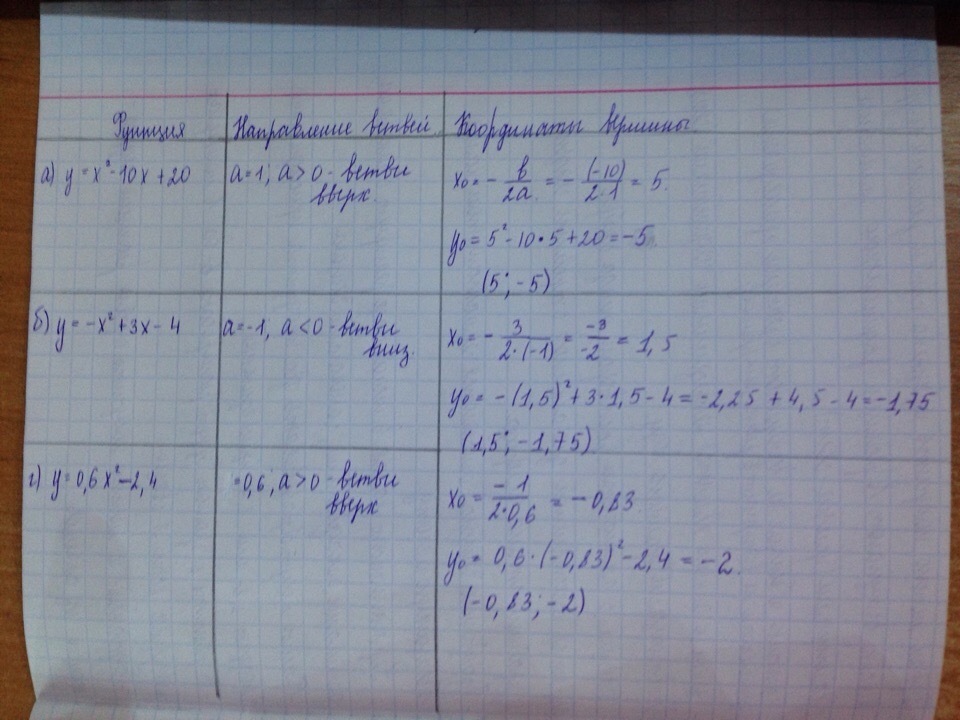 Функция Направление ветвей Координаты вершины
а) y = x² - 10x + 20 a = 1; a > 0 - ветви вверх.
x₀ = - b/2a = - (-10)/2·1 = 5.
y₀ = 5² - 10·5 + 20 = -5.
(5; -5)
б) y = -x² + 3x - 4 a = -1; a < 0 - ветви вниз.
x₀ = - 3/2·(-1) = -3/-2 = 1,5
y₀ = -(1,5)² + 3·1,5 - 4 = -2,25 + 4,5 - 4 = -1,75
(1,5; -1,75)
г) y = 0,6x² - 2,4 = 0,6, a > 0 - ветви вверх
x₀ = -1/2·0,6 = -0,83
y₀ = 0,6·(-0,83)² - 2,4 = -2.
(-0,83; -2)